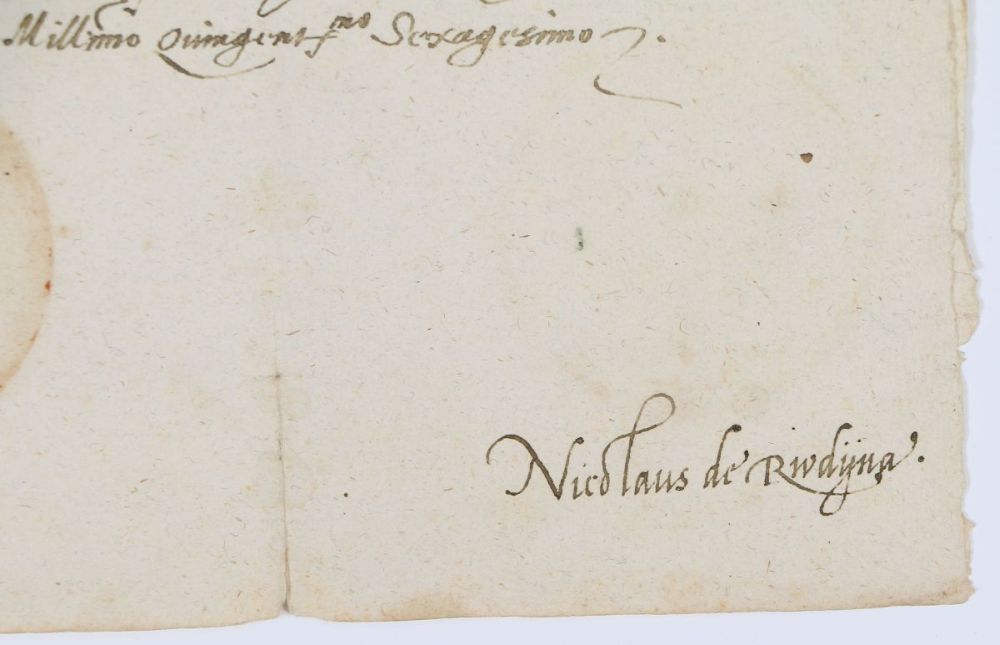 Millimo Quingentmo Sexagesimo
Nicolaus de Rwdijna.